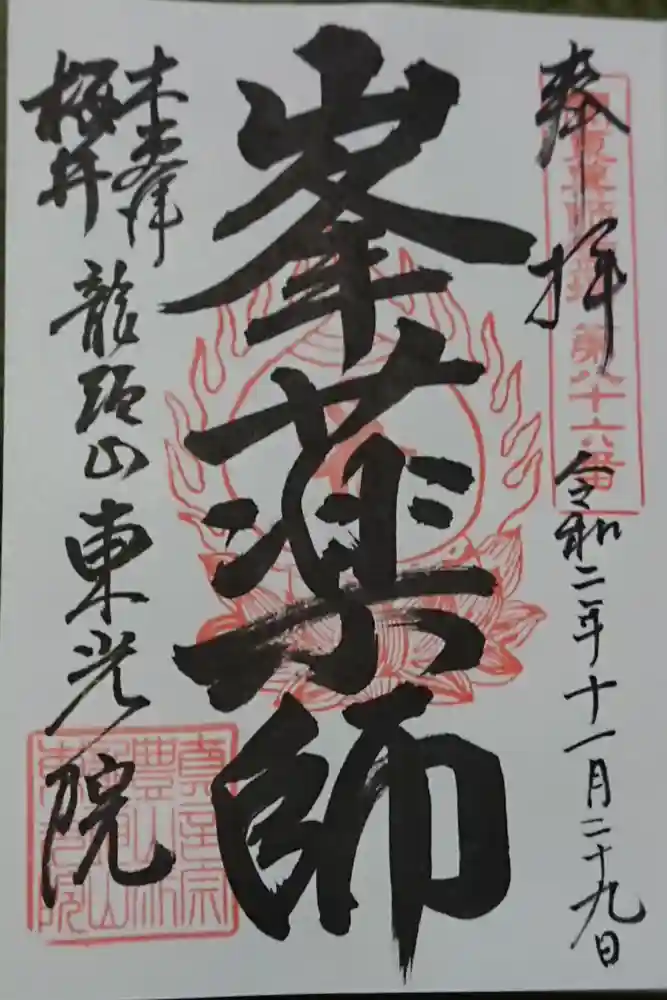 奉拝
第八十六番
令和二年十一月二十九日
峯薬師
木更津
桜井
龍頭山
東光院
真言宗
豊山派
東光院